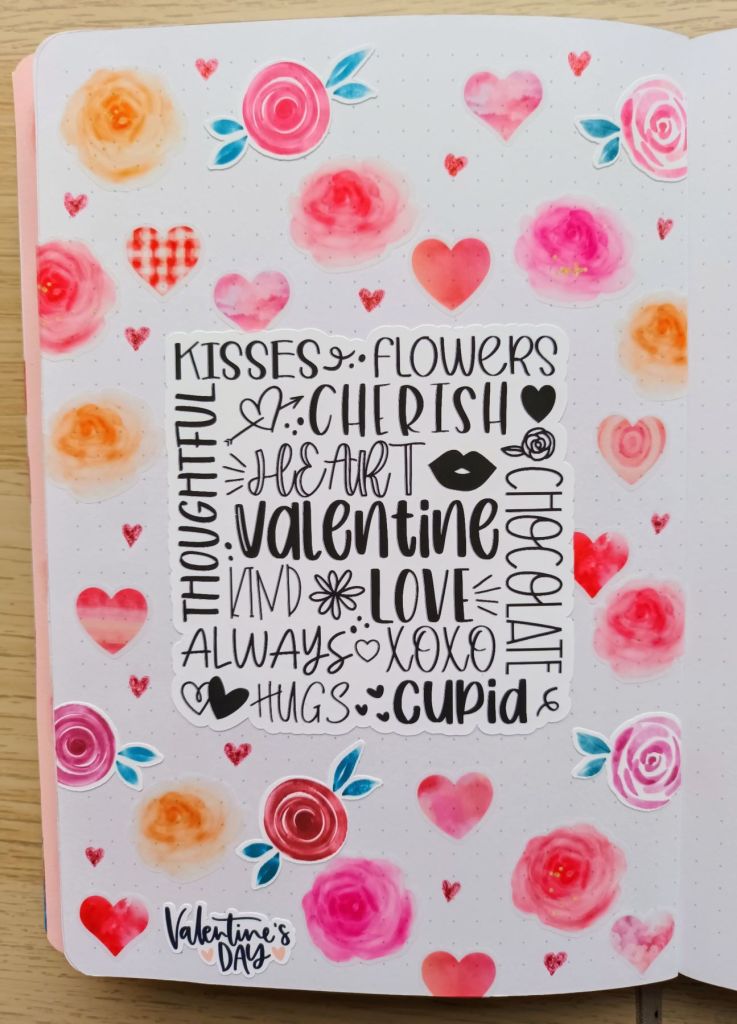 KISSES
FLOWERS
THOUGHTFUL
CHERISH
HEART
CHOCOLATE
Valentine
KIND
LOVE
ALWAYS
XOXO
HUGS
CUPID
Valentine's
DAY